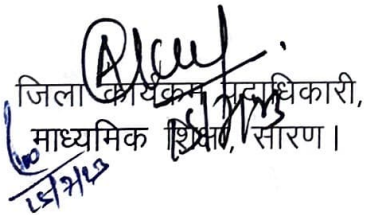 जिला कार्यक्रम पदाधिकारी,
माध्यमिक शिक्षा, सारण।
15/7/23